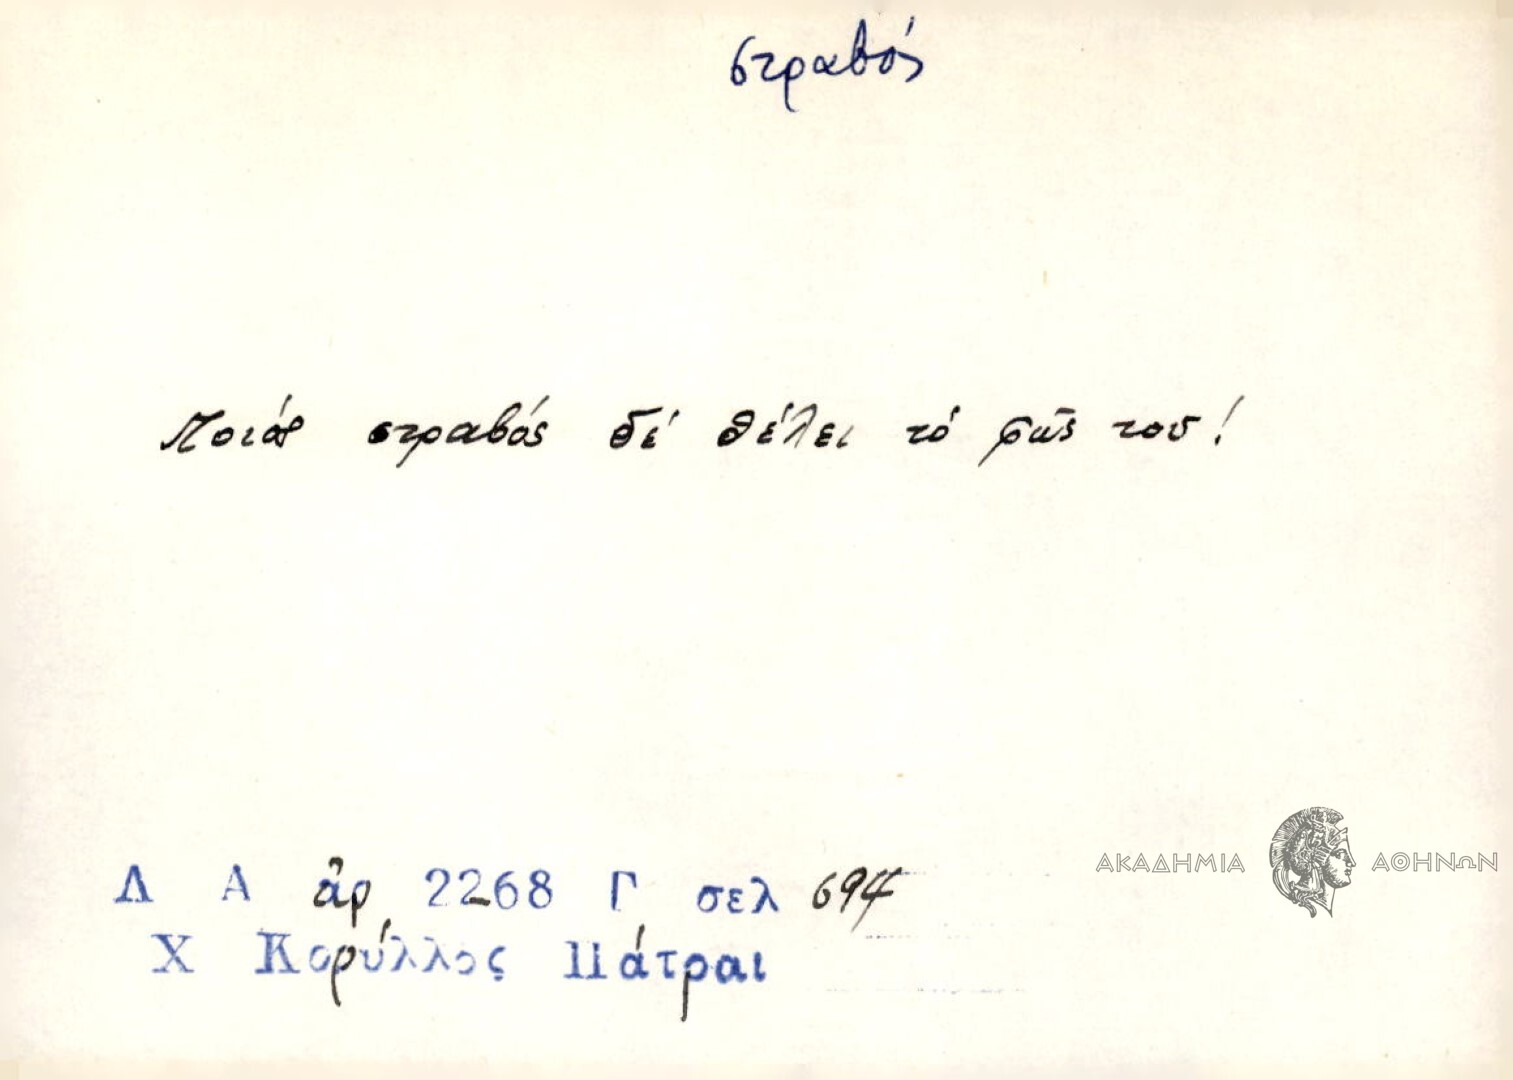 στραβός
Ποιός στραβός δέ θέλει τό φῶς του!
ΑΚΑΔΗΜΙΑ ΑΘΗΝΩΝ
Λ Α ἀρ 2268 Γ σελ 694
Χ Κορύλλος Πάτραι